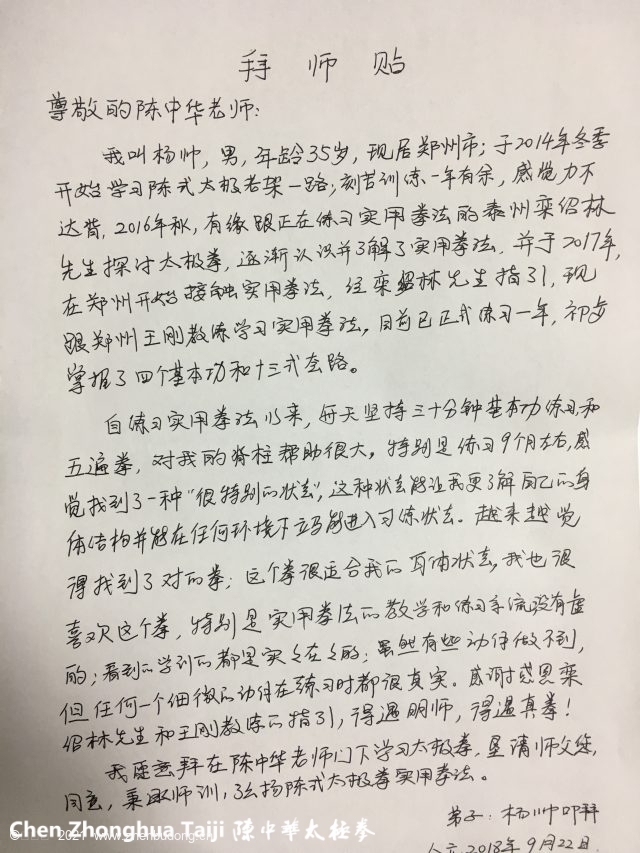 拜 师 贴
尊敬的陈中华老师:
我叫杨帅,男,年龄35岁,现居郑州市;于2014年冬季
开始学习陈式太极老架一路;刻苦训练一年有余,感觉力不
达背,2016年秋,有缘跟正在练习实用拳法的泰州栾绍林
先生探讨太极拳,逐渐认识并了解了实用拳法,并于2017年,
在郑州开始接触实用拳法,经栾绍林先生指引,现
跟郑州王刚教练学习实用拳法,目前已正式练习一年,初步
掌握了四个基本功和十三式套路。
自练习实用拳法以来,每天坚持三十分钟基本功练习和
五遍拳,对我的脊柱帮助很大,特别是练习9个月左右,感
觉找到了一种"很特别的状态",这种状态能让我更了解自己的身
体结构并能在任何环境下立马能进入习练状态。越来越觉
得找到了对的拳;这个拳很适合我的身体状态,我也很
喜欢这个拳,特别是实用拳法的教学和练习系统没有虚
的;看到的学到的都是实々在々的;虽然有些动作做不到,
但任何一个细微的动作在练习时都很真实。感谢感恩栾
绍林先生和王刚教练的指引,得遇明师,得遇真拳!
我愿意拜在陈中华老师门下学习太极拳,恳请师父您,
同意,秉承师训,弘扬陈式太极拳实用拳法。
弟子:杨帅叩拜
2018年9月22日
Chen Zhonghua Taiji 陳中華太極拳